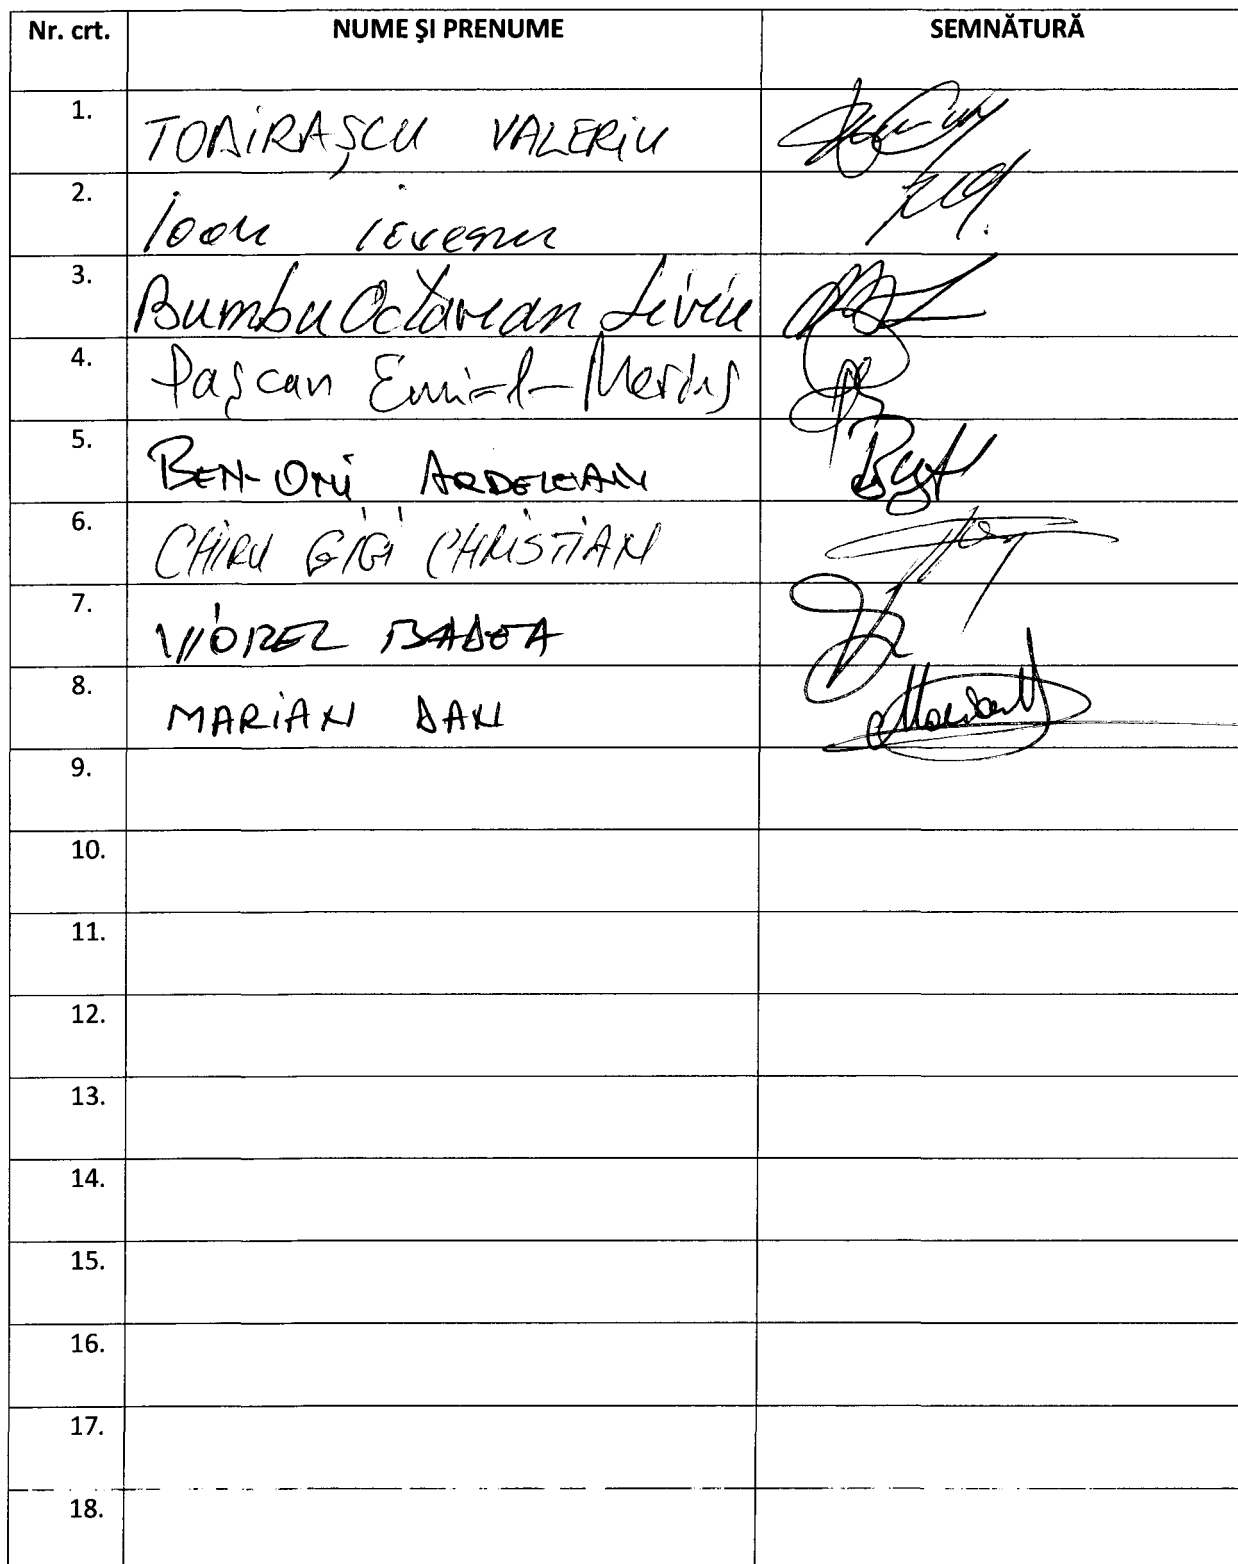 Nr. crt. NUME ŞI PRENUME SEMNĂTURĂ
1. TODIRAŞCU VALERIU
2. Ioan
3. Bumbu Octavian Liviu
4. Paşcan Emil-Marius
5. BEN-ONI ARDELEAN
6. CHIRU GIGI CHRISTIAN
7. VIOREL BADEA
8. MARIAN DAN
9.
10.
11.
12.
13.
14.
15.
16.
17.
18.